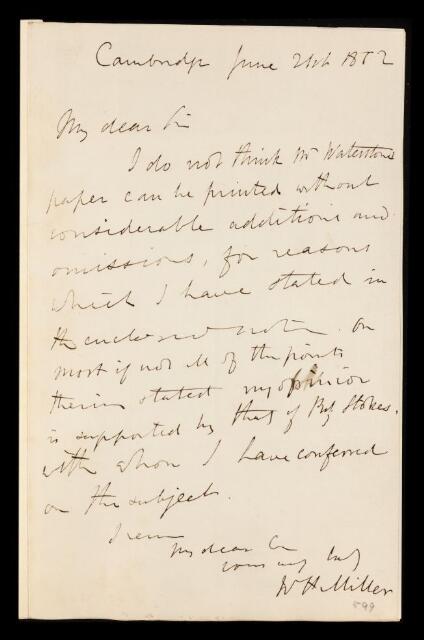 Cambridge June 21st 1852
My dear Sir
I do not think Mr Waterston's
paper can be printed without
considerable additions and
omissions, for reasons
which I have stated in
the enclosed note. On
most if not all of the points
therein stated my opinion
is supported by that of Prof Stokes,
with whom I have conferred
on the subject.
I remain
My dear Sir
yours very truly
W H Miller
599